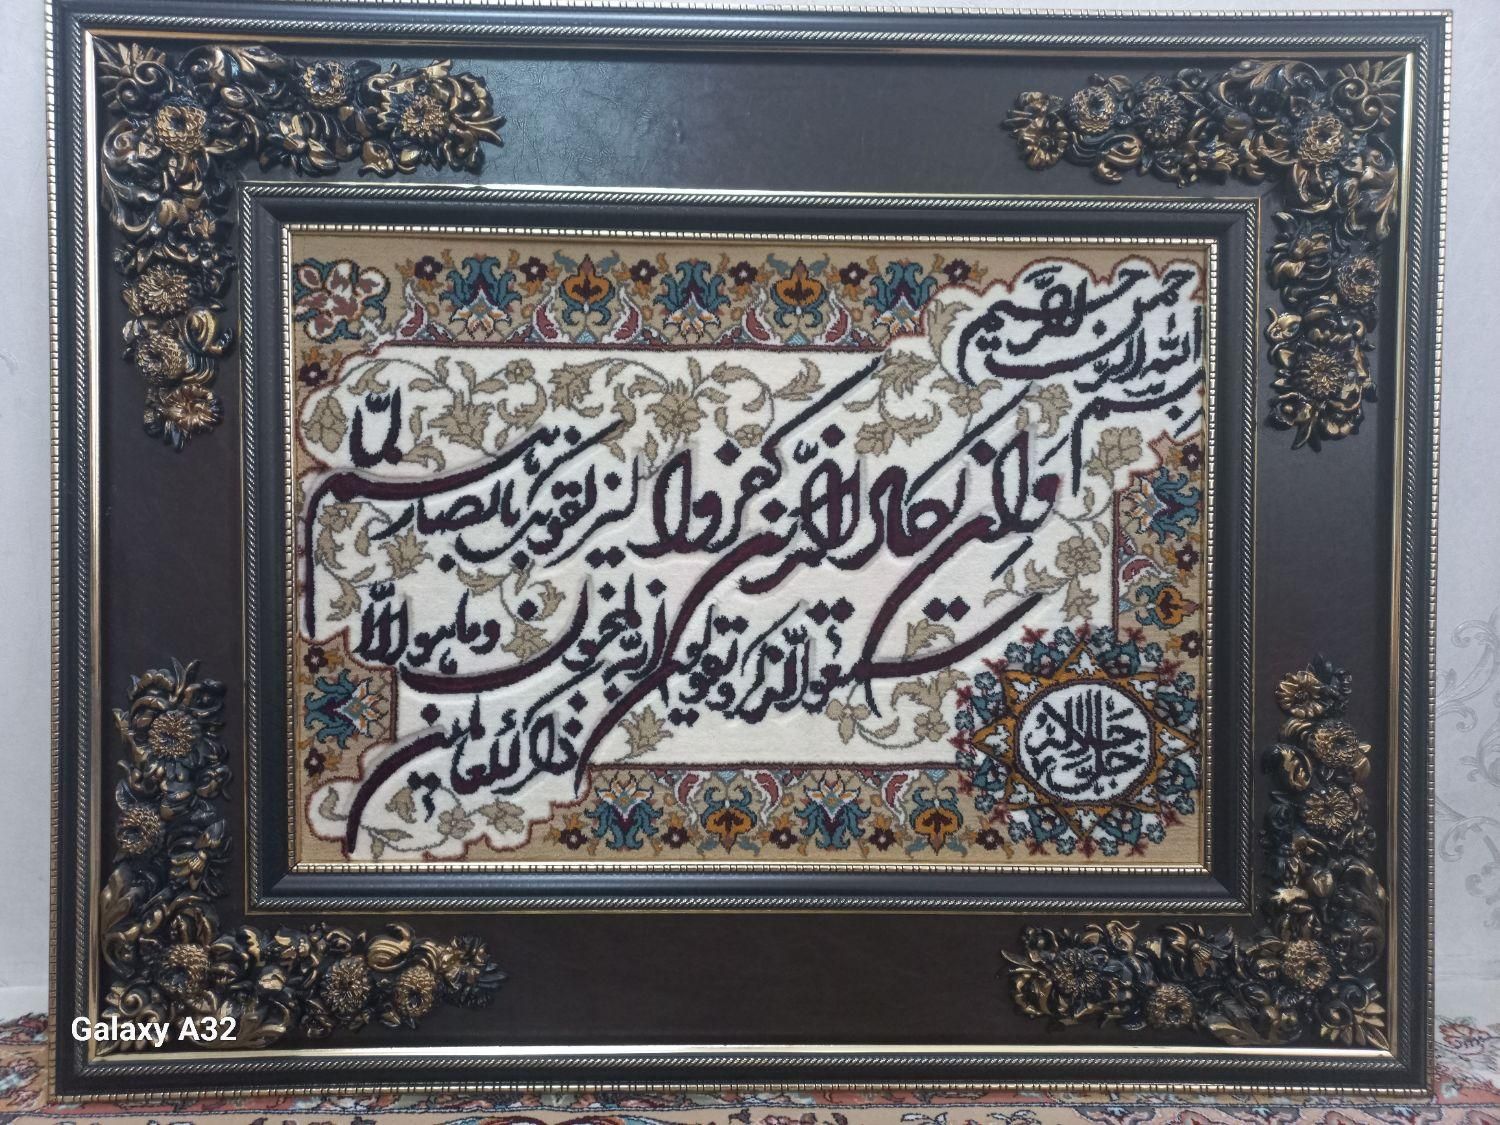 بسم الله الرحمن الرحیم
وان یکاد الذین کفروا لیزلقونک بابصارهم لما
سمعوا الذکر و یقولون انه لمجنون وما هو الا
ذکر للعالمین
جل جلاله
Galaxy A32